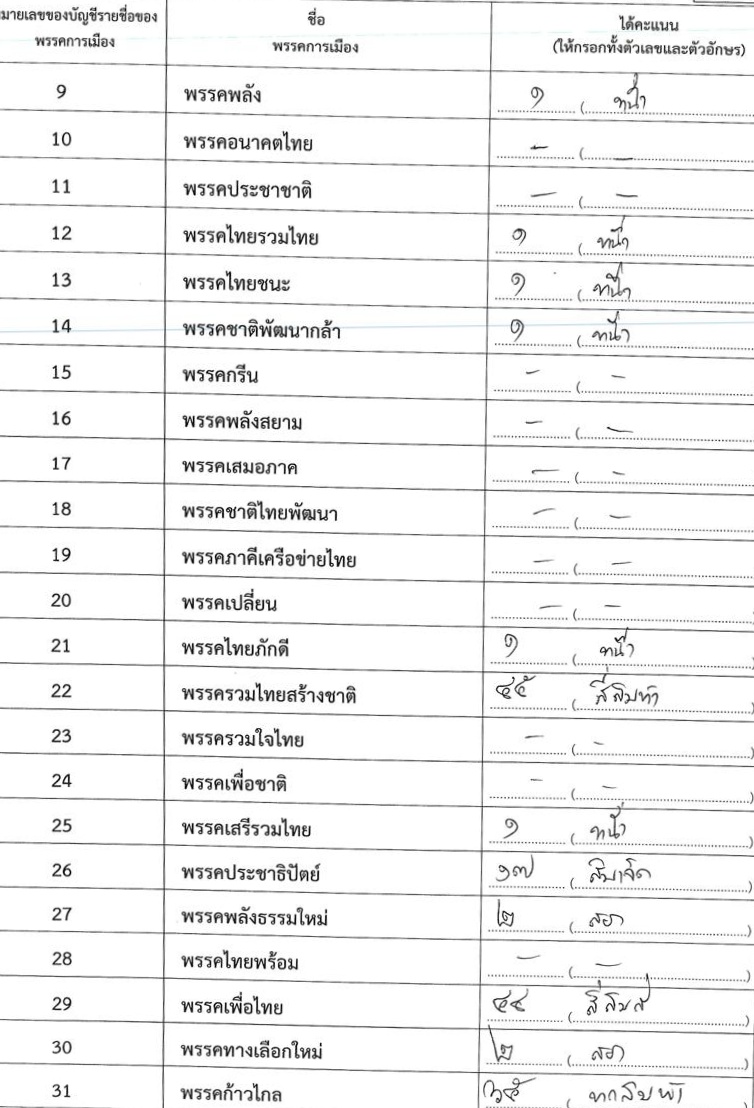 หมายเลขของบัญชีรายชื่อของ ชื่อ ได้คะแนน
พรรคการเมือง พรรคการเมือง (ให้กรอกทั้งตัวเลขและตัวอักษร)
9 พรรคพลัง ๑ ( หนึ่ง
10 พรรคอนาคตไทย - ( -
11 พรรคประชาชาติ - ( -
12 พรรคไทยรวมไทย ๑ ( หนึ่ง
13 พรรคไทยชนะ ๑ ( หนึ่ง
14 พรรคชาติพัฒนากล้า ๑ ( หนึ่ง
15 พรรคกรีน - ( -
16 พรรคพลังสยาม - ( -
17 พรรคเสมอภาค - ( -
18 พรรคชาติไทยพัฒนา - ( -
19 พรรคภาคีเครือข่ายไทย - ( -
20 พรรคเปลี่ยน - ( -
21 พรรคไทยภักดี ๑ ( หนึ่ง )
22 พรรครวมไทยสร้างชาติ ๔๕ ( สี่สิบห้า )
23 พรรครวมใจไทย - ( - )
24 พรรคเพื่อชาติ - ( - )
25 พรรคเสรีรวมไทย ๑ ( หนึ่ง )
26 พรรคประชาธิปัตย์ ๑๗ ( สิบเจ็ด )
27 พรรคพลังธรรมใหม่ ๒ ( สอง )
28 พรรคไทยพร้อม - ( - )
29 พรรคเพื่อไทย ๔๔ ( สี่สิบสี่ )
30 พรรคทางเลือกใหม่ ๒ ( สอง )
31 พรรคก้าวไกล ๖๕ ( หกสิบห้า )